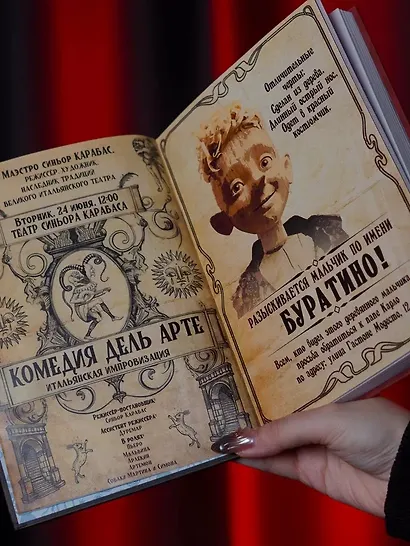 Маэстро Синьор Карабас,
режиссер, художник,
наследник традиций
великого итальянского театра
Вторник, 24 июня, 12:00
Театр Синьора Карабаса
Комедия дель арте
Итальянская импровизация
Режиссер-постановщик:
Синьор Карабас
Ассистент режиссера:
Дуремар
В ролях:
Пьеро
Мальвина
Арлекин
Артемон
Собаки Мартина и Симона
Отличительные
черты:
Сделан из дерева.
Длинный острый нос.
Одет в красный
костюмчик.
Разыскивается мальчик по имени
Буратино!
Всем, кто видел этого деревянного мальчика,
просьба обратиться к папе Карло
по адресу: Улица Гаэтано Модесто, 12